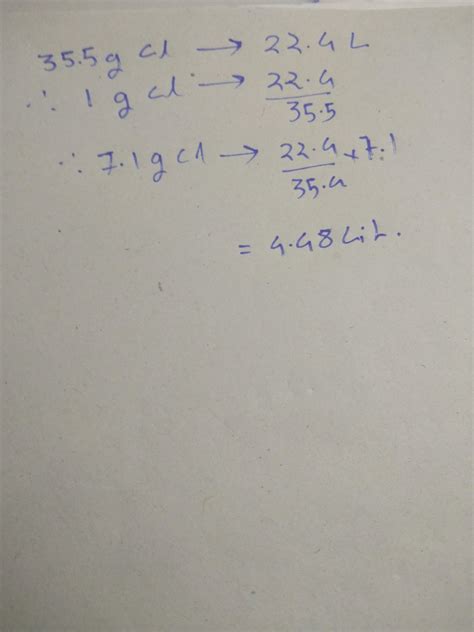 35.5 g Cl → 22.4 L
∴ 1 g Cl → 22.4
35.5
∴ 7.1 g Cl → 22.4 × 7.1
35.4
= 4.48 Lit.